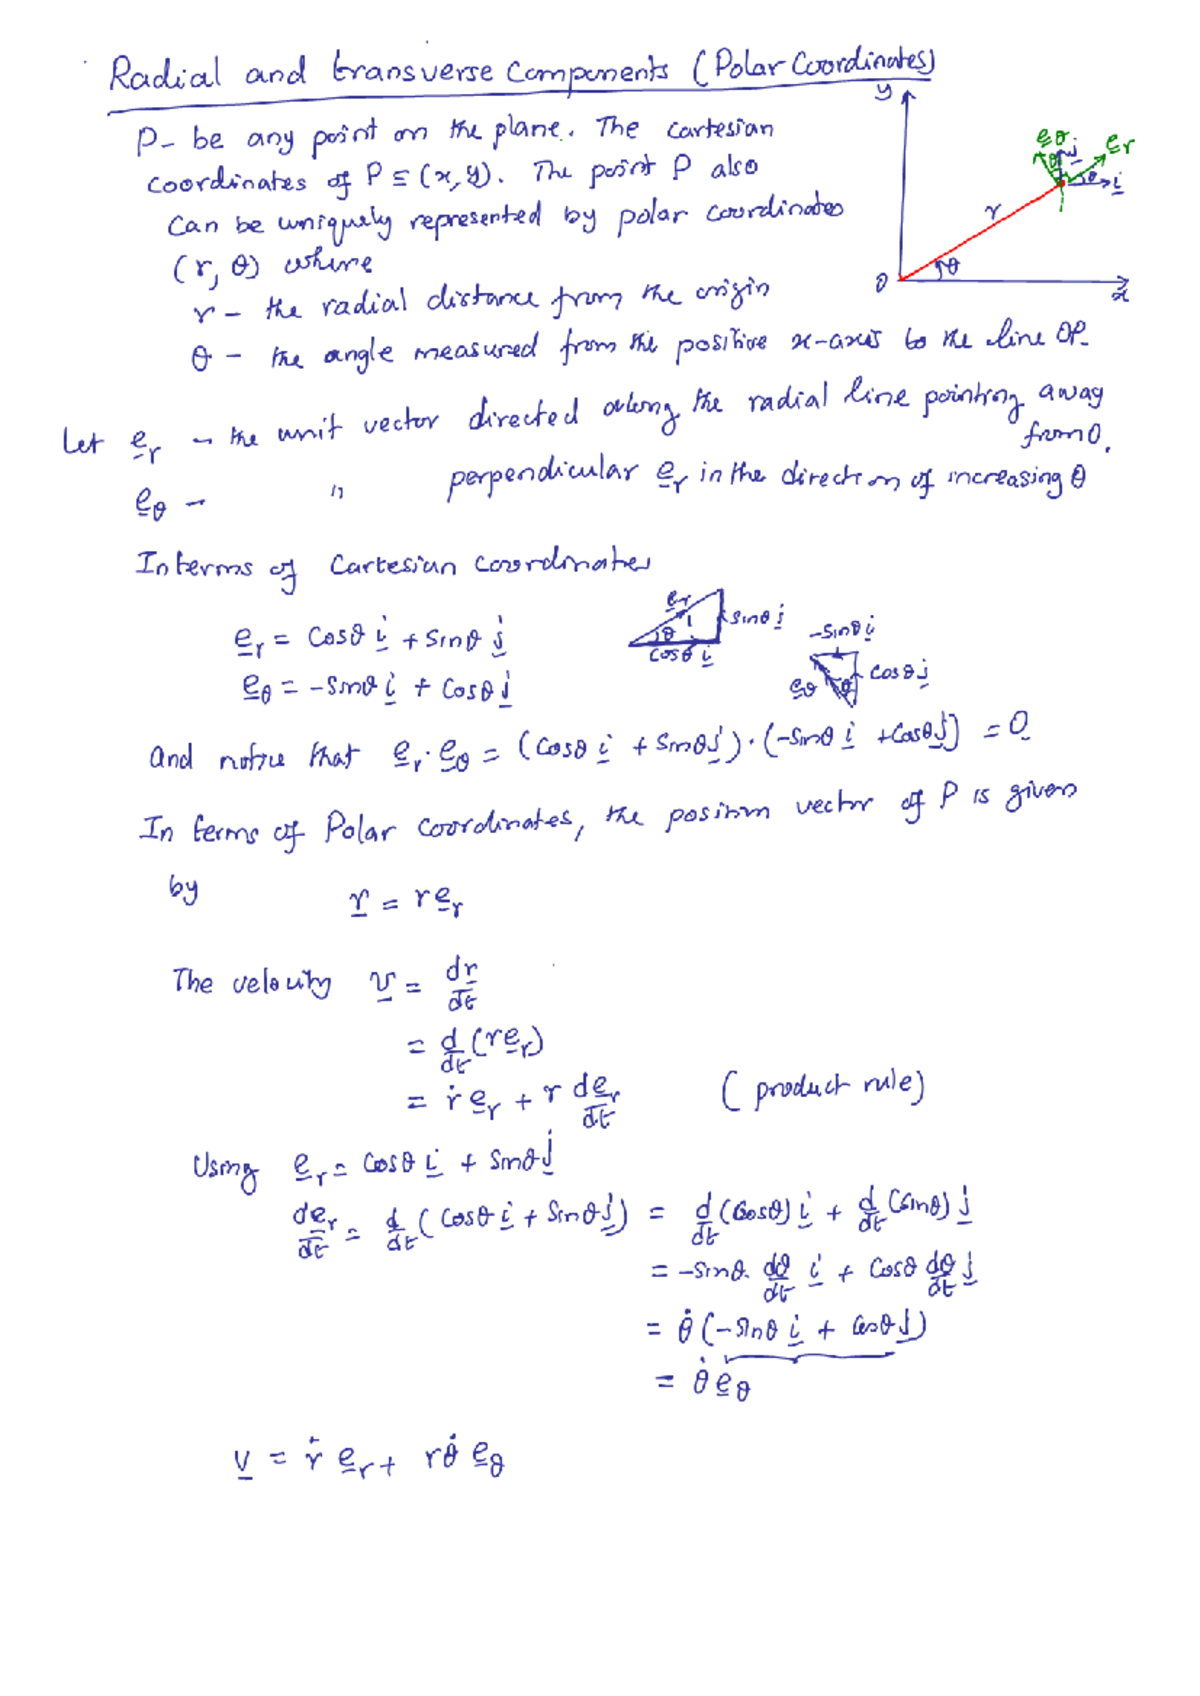 Radial and transverse Components (Polar Coordinates)
P- be any point on the plane. The cartesian
coordinates of P ≡ (x, y). The point P also
Can be uniquely represented by polar coordinates
(r, θ) where
r - the radial distance from the origin
θ - the angle measured from the positive x-axis to the line OP.
y
e̲θ
j̲
e̲r
θ
θ
i̲
r
θ
O
x
Let e̲r - the unit vector directed along the radial line pointing away
from O.
e̲θ - " perpendicular e̲r in the direction of increasing θ
Interms of Cartesian coordinates
e̲r = Cosθ i̲ + Sinθ j̲
e̲θ = -Sinθ i̲ + Cosθ j̲
e̲r
1
θ
Sinθ j̲
Cosθ i̲
-Sinθ i̲
Cosθ j̲
e̲θ
θ
And notice that e̲r · e̲θ = (Cosθ i̲ + Sinθ j̲) · (-Sinθ i̲ + Cosθ j̲) = 0
In terms of Polar coordinates, the position vector of P is given
by r̲ = r e̲r
The velocity v̲ = dr̲/dt
= d/dt (r e̲r)
= ṙ e̲r + r de̲r/dt (product rule)
Using e̲r = Cosθ i̲ + Sinθ j̲
de̲r/dt = d/dt (Cosθ i̲ + Sinθ j̲) = d/dt (Cosθ) i̲ + d/dt (Sinθ) j̲
= -Sinθ. dθ/dt i̲ + Cosθ dθ/dt j̲
= θ̇ (-Sinθ i̲ + Cosθ j̲)
= θ̇ e̲θ
v̲ = ṙ e̲r + r θ̇ e̲θ